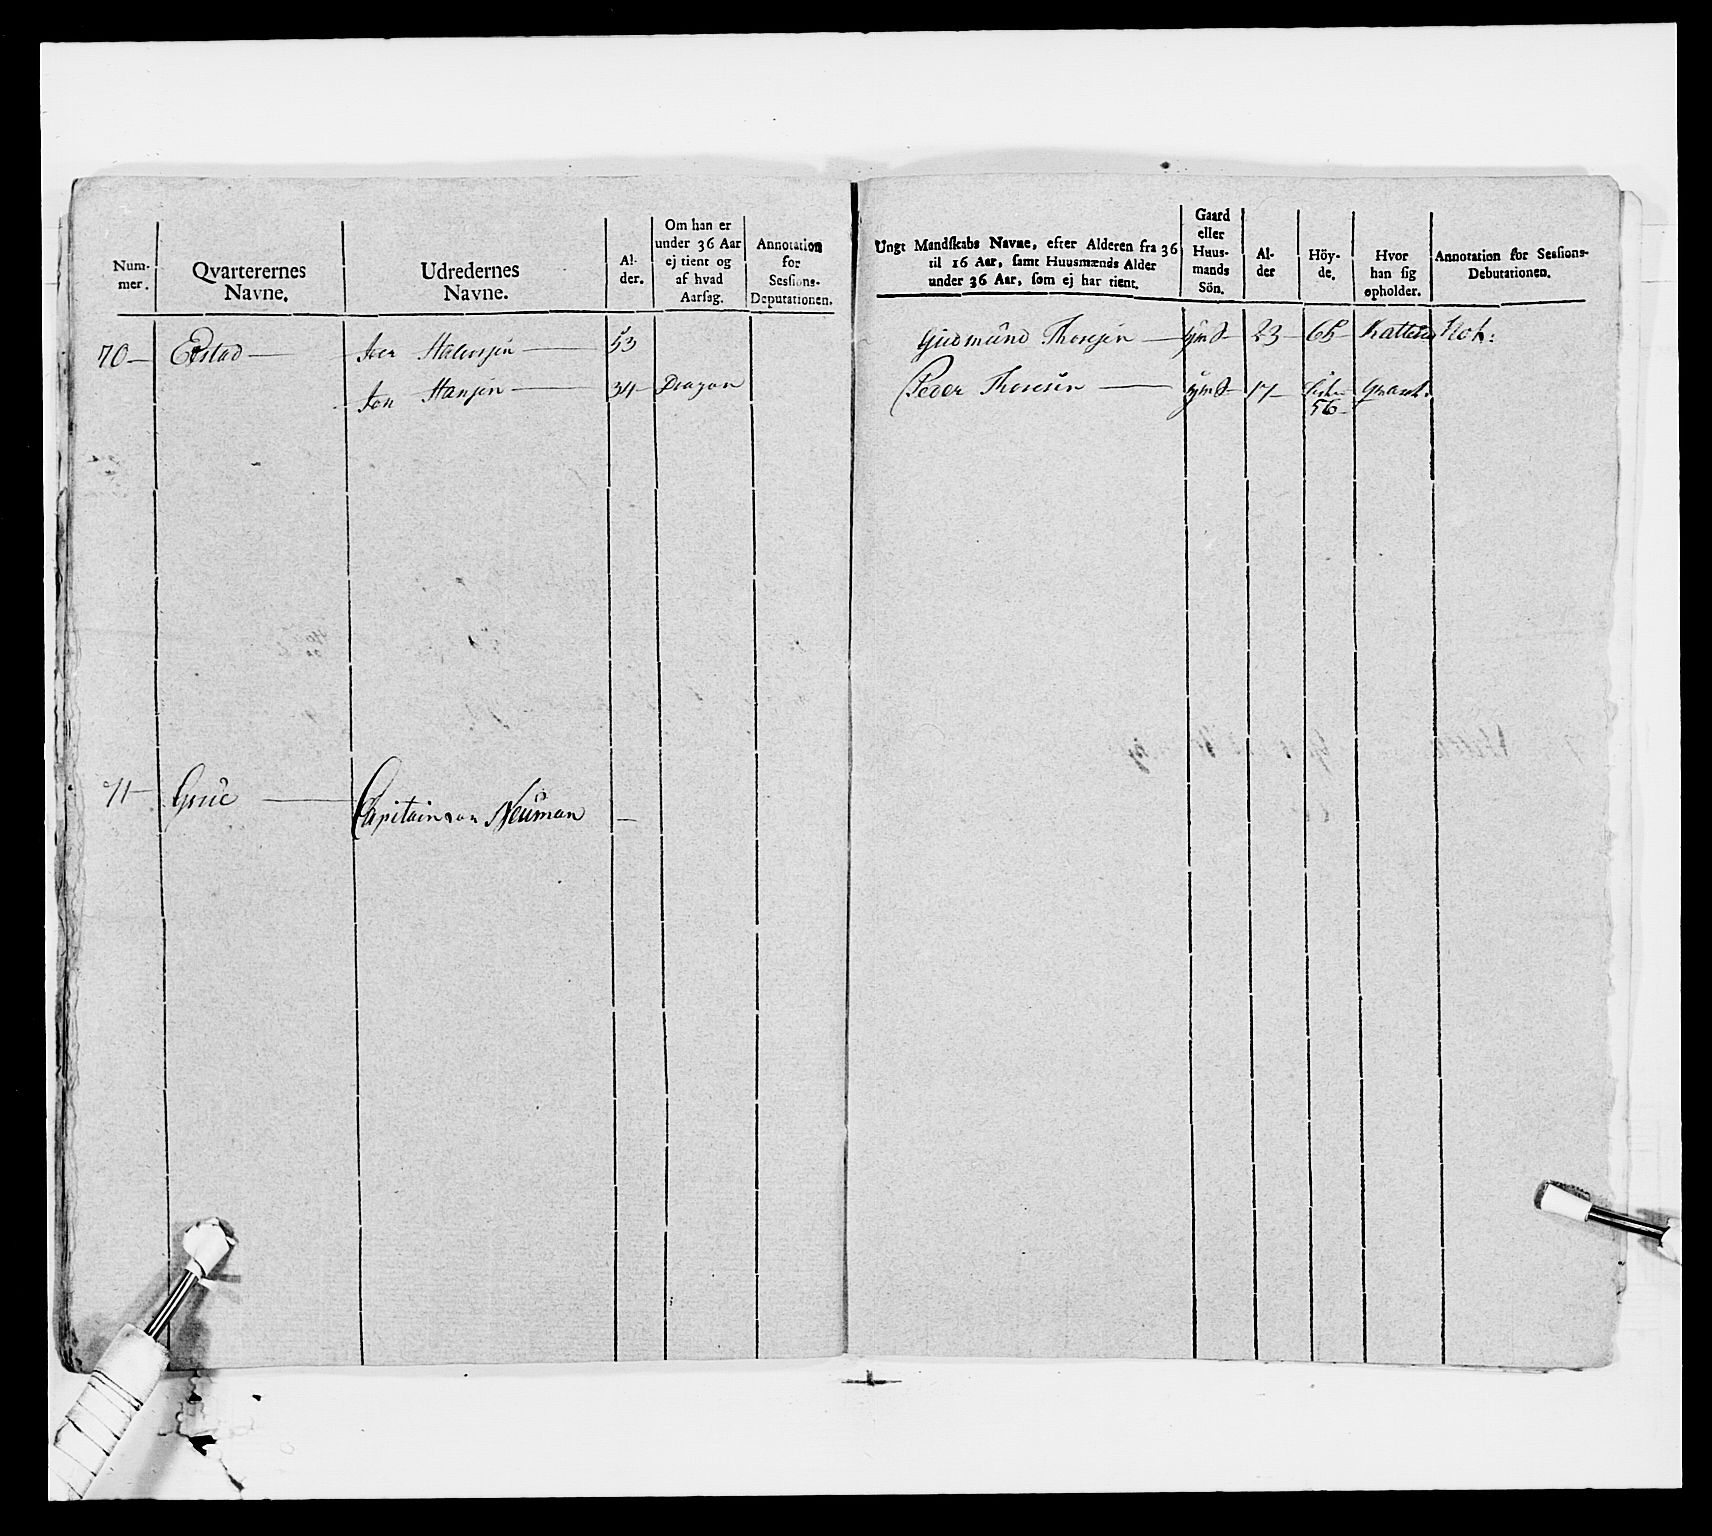 Num-
mer.
Qvarterernes
Navne.
Udredernes
Navne.
Al-
der.
Om han er
under 36 Aar
ej tient og
af hvad
Aarsag.
Annotation
for
Sessions-
Deputationen.
Ungt Mandskabs Navne, efter Alderen fra 36
til 16 Aar, samt Huusmænds Alder
under 36 Aar, som ej har tient.
Gaard
eller
Huus-
mands
Sön.
Al-
der
Höy-
de.
Hvor
han sig
opholder.
Annotation for Sessions-
Debutationen.
70 — Iver Halvorsen — 53
Jon Hansen — 34 — Dragon
Gudmund Thoresen — 23 — 65
Peder Thoresen — 17 —
56 —
71 — Grue — Capitain von Neuman —